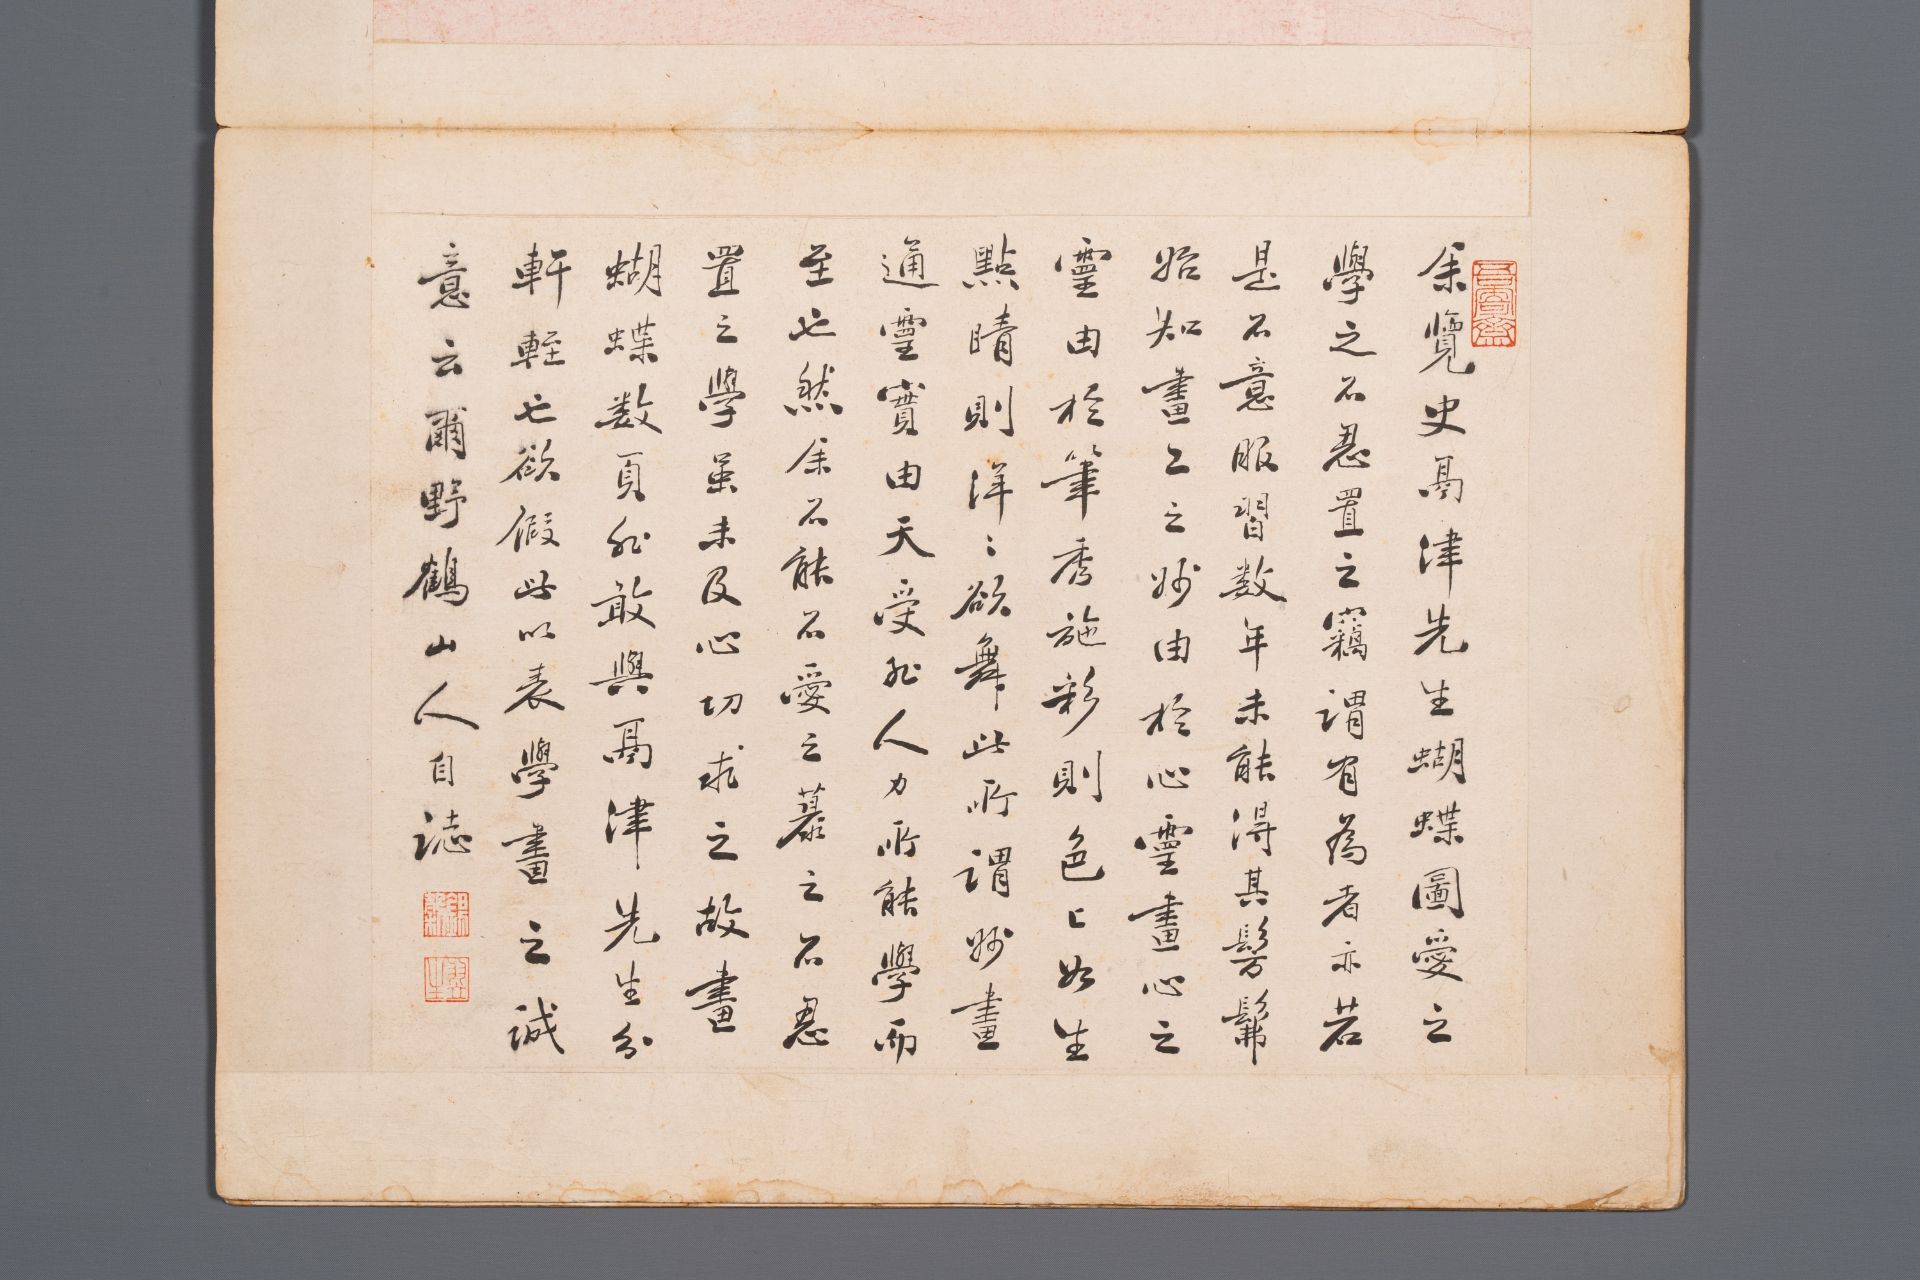 余覽史髙津先生蝴蝶圖愛之
學之不忍置之竊謂有為者亦若
是不意服習数年未能得其髣髴
始知畫工之妙由於心靈畫心之
靈由於筆秀施彩則色〻如生
點睛則洋〻欲舞此所謂妙畫
通靈實由天受非人力所能學而
至也然余不能不愛之慕之不忍
置之學虽未及心切求之故畫
蝴蝶数頁非敢與髙津先生分
軒輊也欲假此以表學畫之誠
意云爾野鶴山人自誌